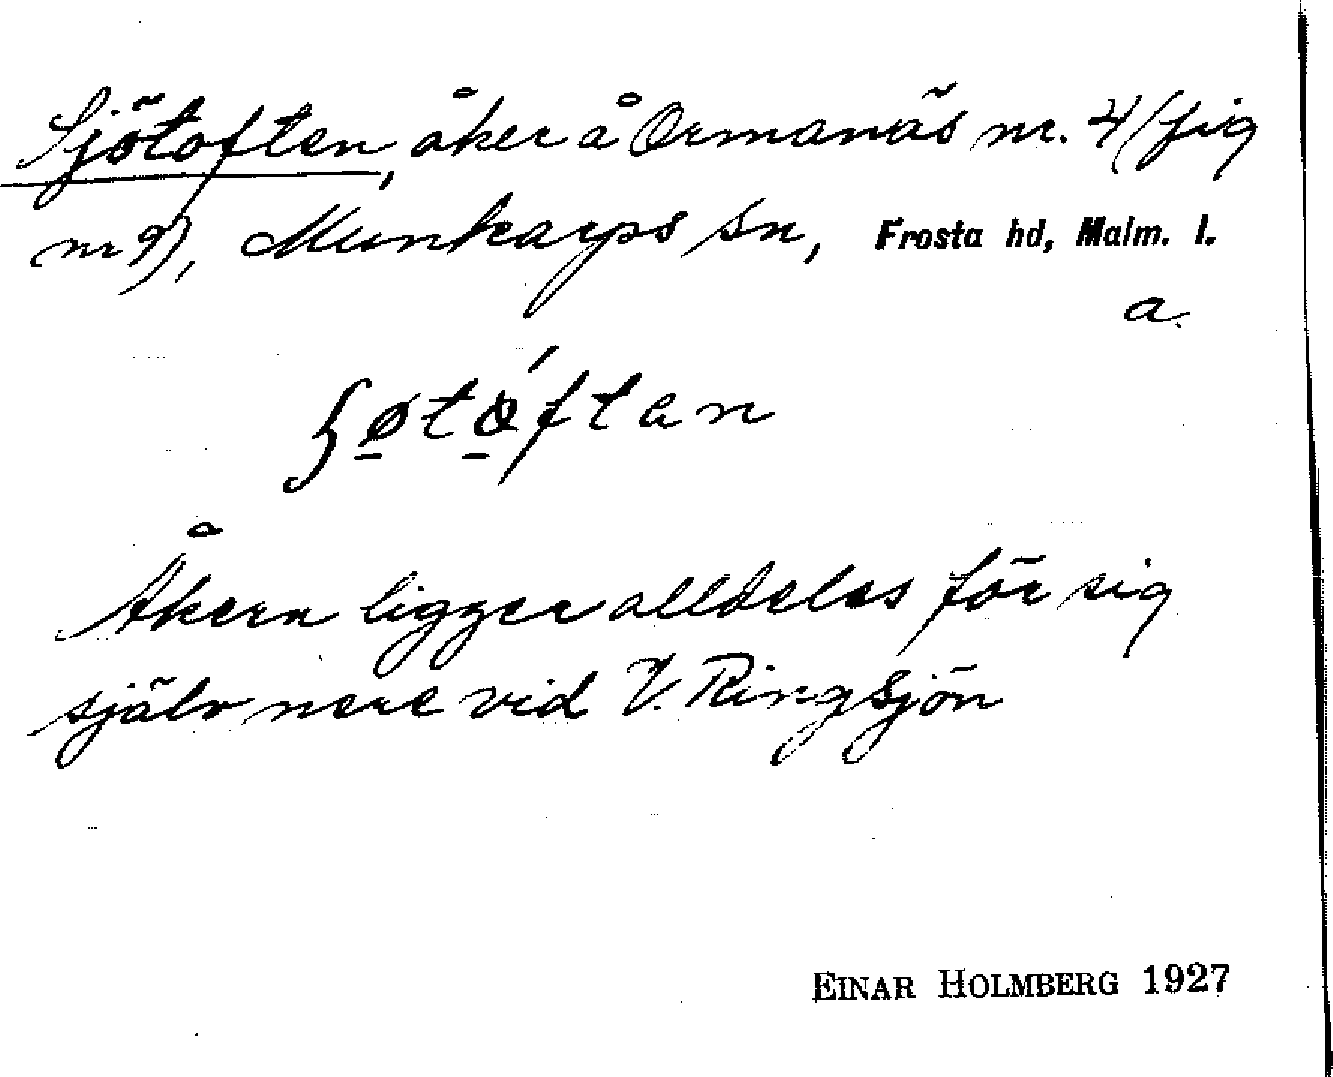 Sjötoften, åker å Ormanäs nr. 4 (fig
nr 9), Munkarps sn, Frosta hd, Malm. l.
a.
ʂø̲to̲ftan
Åkern ligger alldeles för sig
själv nere vid V. Ringsjön
EINAR HOLMBERG 1927